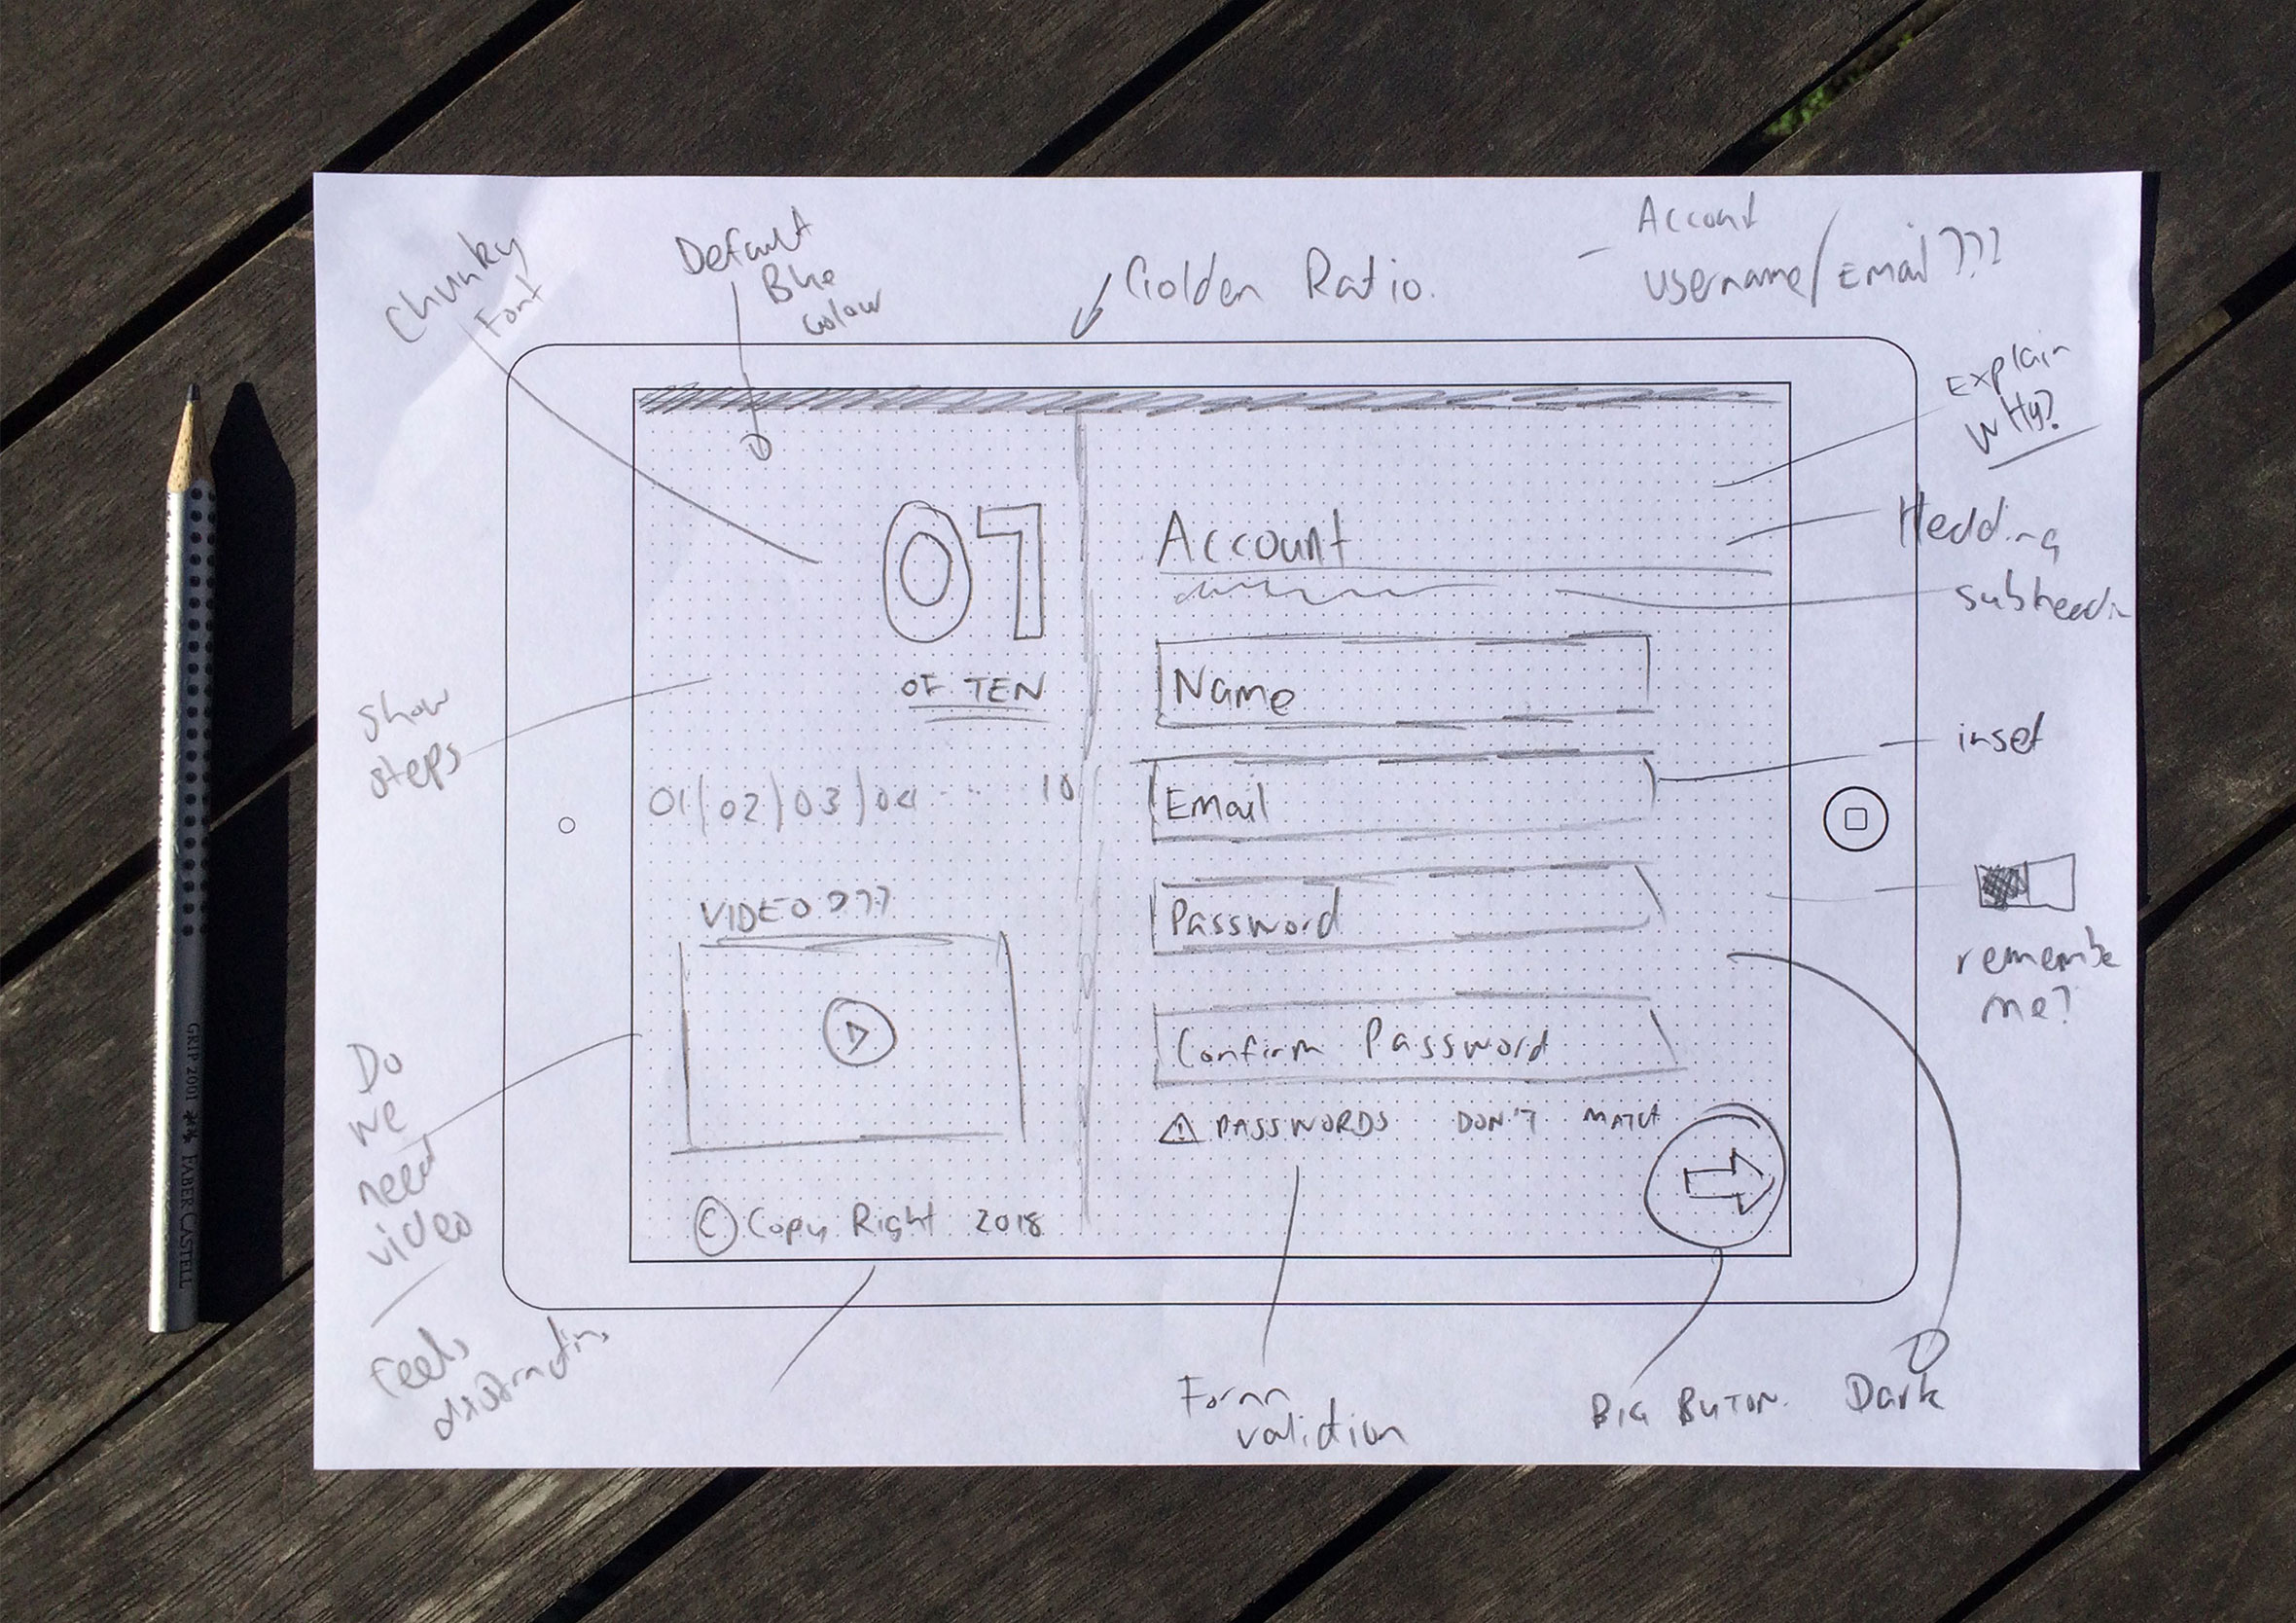 Chunky
Font
Default
Blue
Colour
Golden Ratio.
- Account
username/Email???
Explain
WHY?
Hedding
subheadin
inset
remembe
me?
Dark
BIG BUTON.
Form
validtion
Show
steps
Do
we
need
video
Feels
07
OF TEN
01/02/03/04 ... 10
VIDEO???
© Copy Right 2018
Account
Name
Email
Password
Confirm Password
⚠ PASSWORDS DON'T MATCH
GRIP 2001 FABER-CASTELL